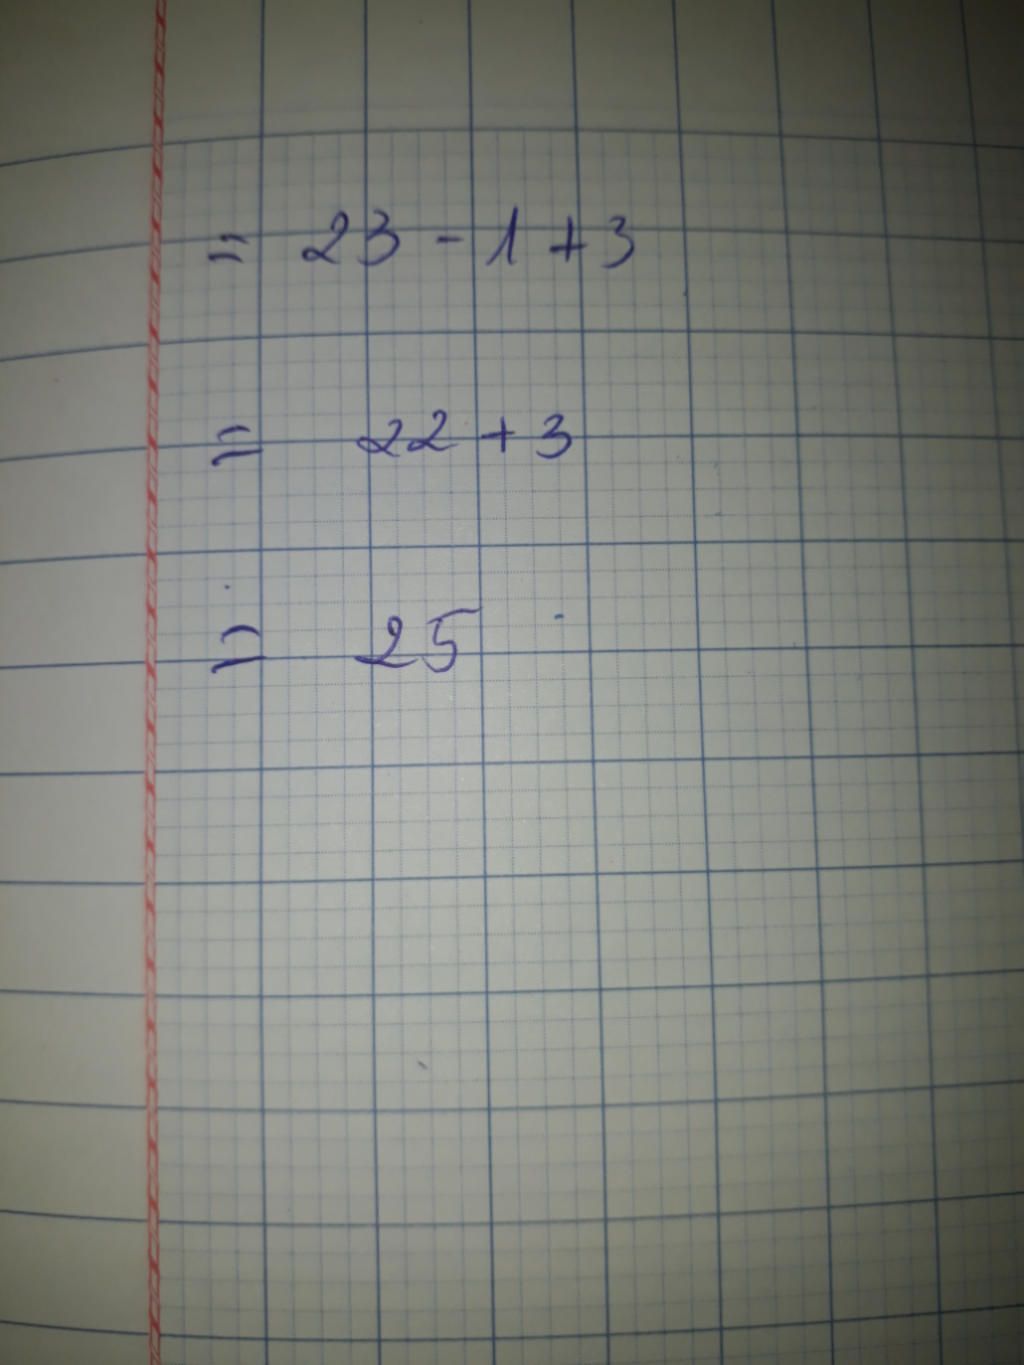 = 23 - 1 + 3
= 22 + 3
= 25